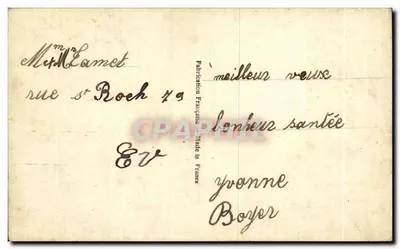 Mr & Mme Lamet
rue St Roch 79
EV
Fabrication Française - Made in France
meilleur veux
bonheur santée
yvonne
Boyer
CPAPHIL